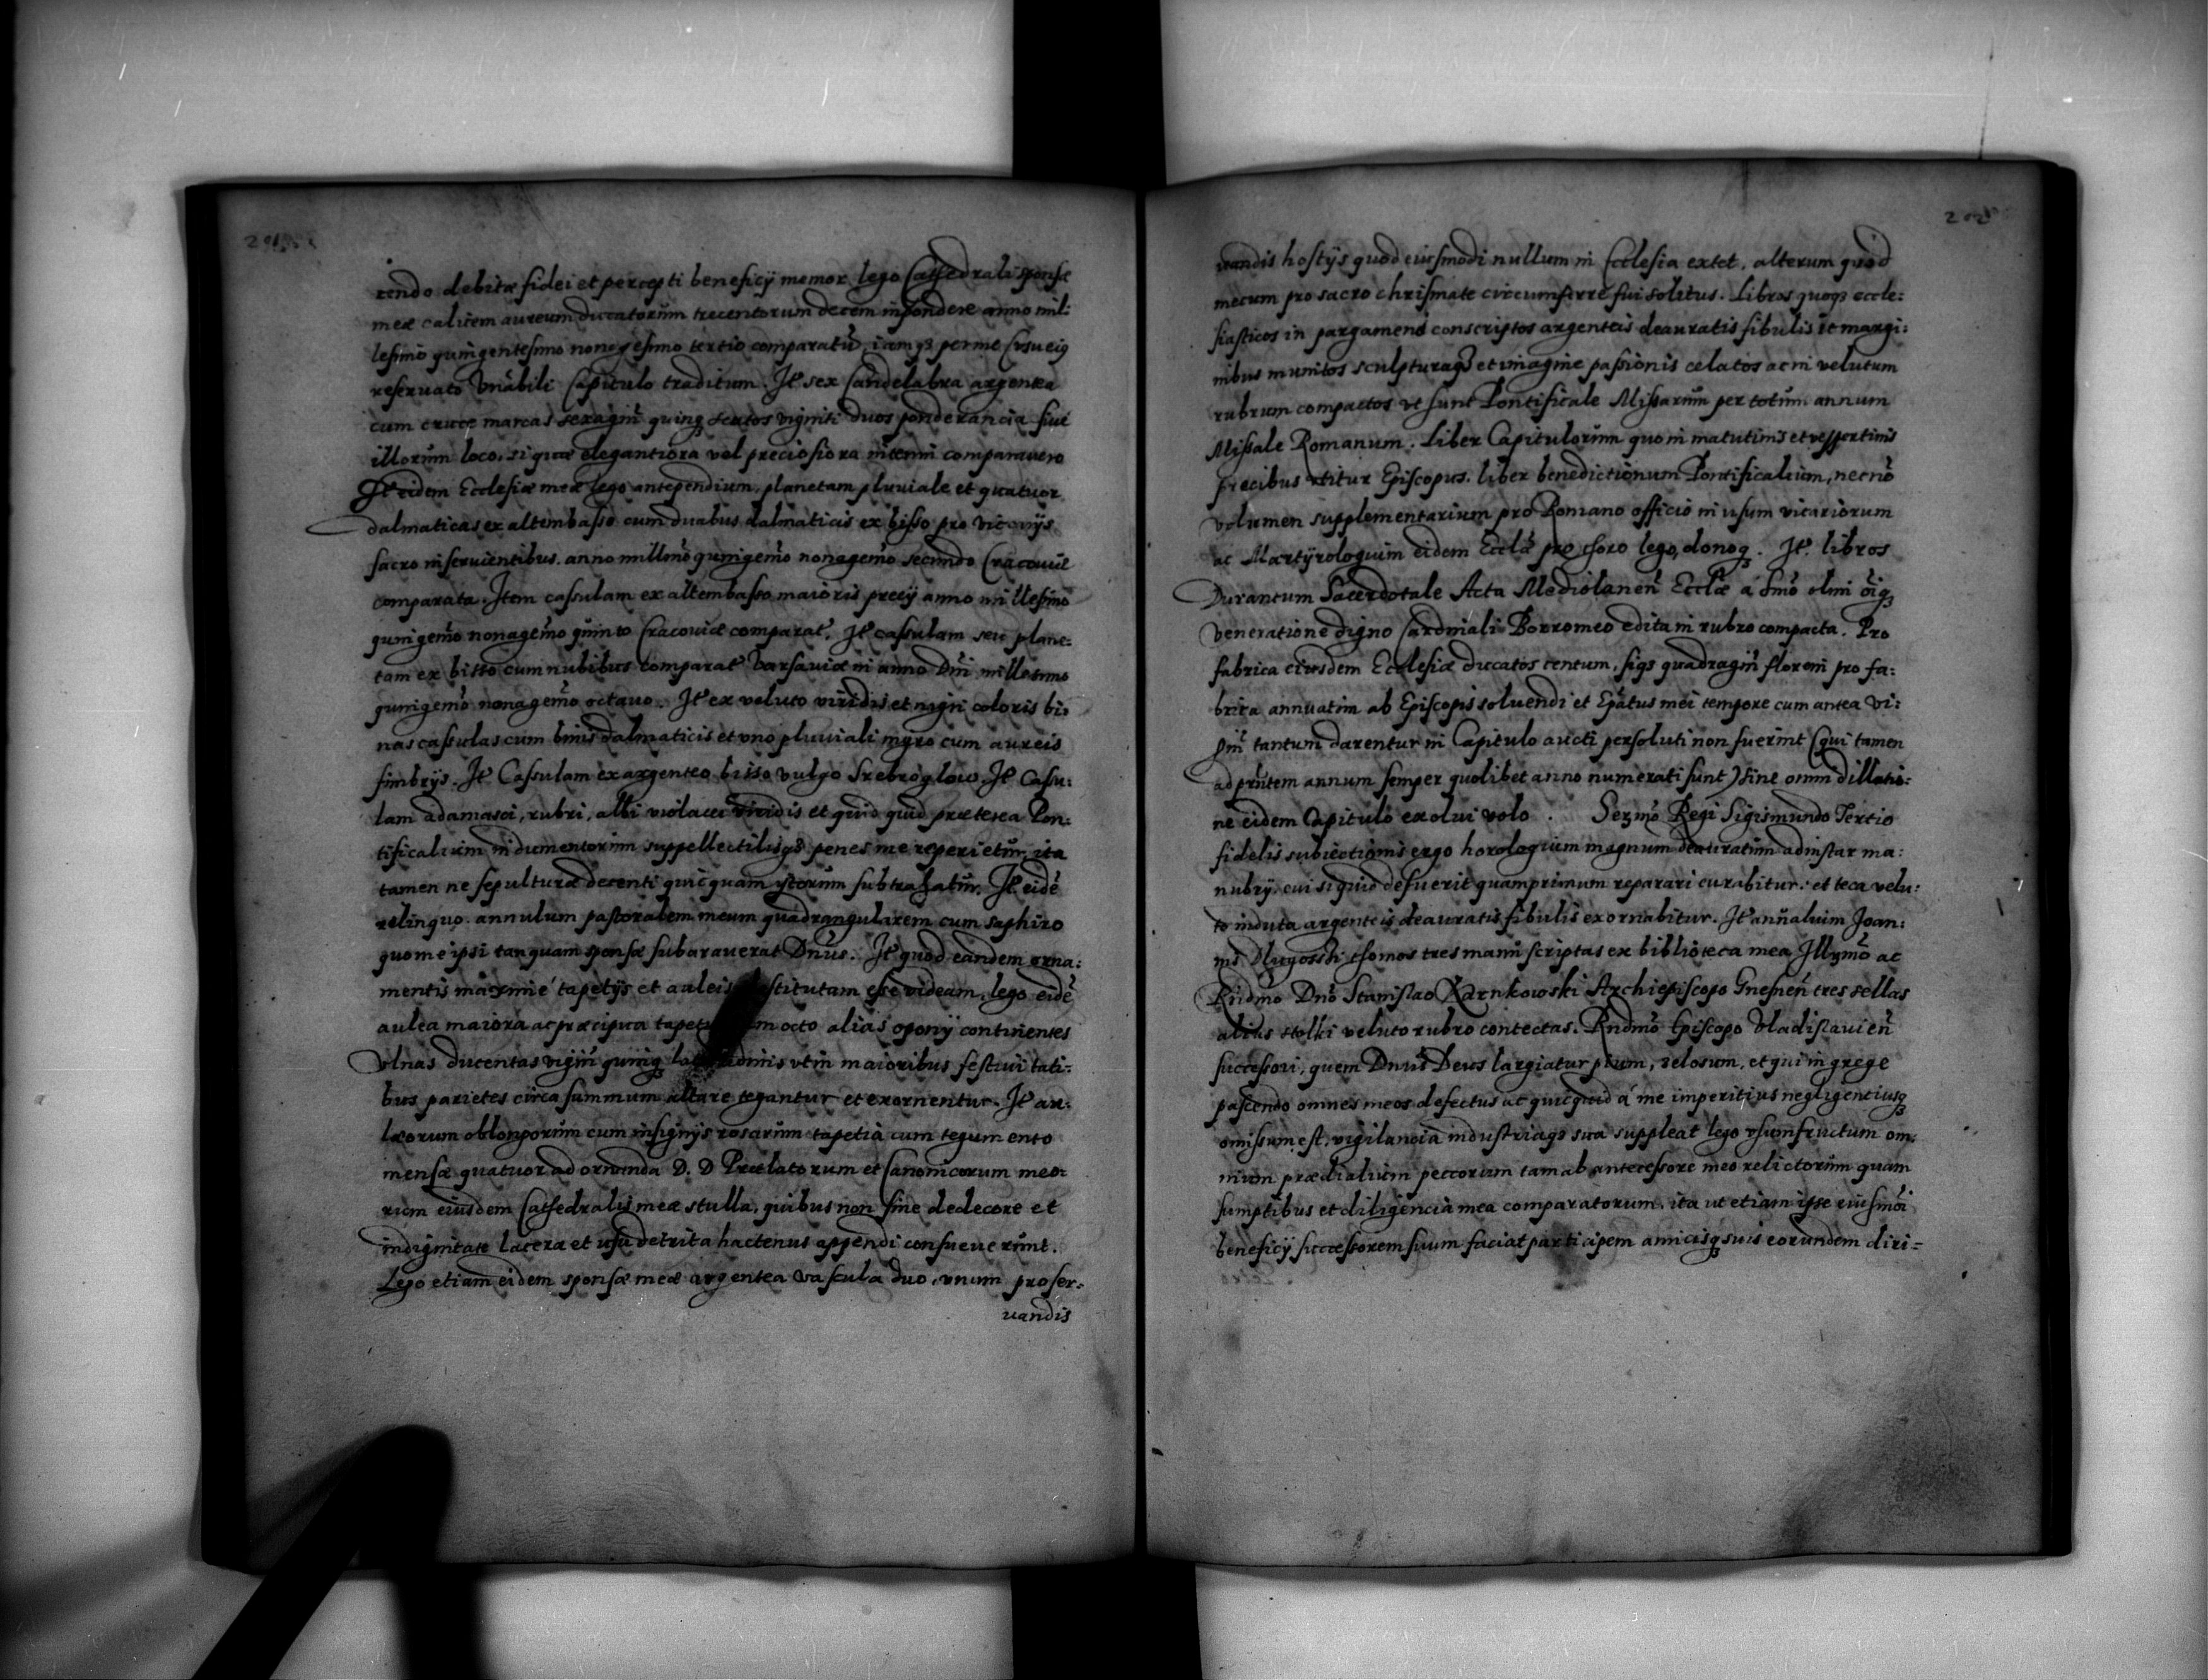 rendo debitæ fidei et percepti beneficÿ memor lego Cathedrali sponsæ
meæ calicem aureum ducatorum trecentorum decem in pondere anno mil:
lesimo quingentesimo nonogesimo tertio comparatū, iamqз per me (usu eiꝯ
reseruato Vnābili Capitulo traditum. Jt sex Candelabra argentea
cum cruce marcas sexagin̄ quinqз scutos viginti duos ponderancia siue
illorum loco, si quæ elegantiora vel preciosiora interim comparauero
Jt eidem Ecclesiæ meæ lego antependium, planetam pluuiale et quatuor
dalmaticas ex altembasso cum duabus dalmaticis ex bisso pro vicarijs
sacro inseruientibus. anno millmō quingemō nonagemō secundo Cracouiæ
comparata. Jtem cassulam ex altembasso maioris precÿ anno millesimo
quingemō nonagemō quinto Cracouiæ comparat. Jt cassulam seu plane:
tam ex bisso cum nubibus comparat Varsauiæ in anno Dni millesimo
quingemō nonagemō octauo. Jt ex veluto viridis et nigri coloris bi:
nas cassulas cum binis dalmaticis et uno pluuiali nigro cum aureis
fimbrÿs. Jt Cassulam ex argenteo bisso vulgo Srebroglow Jt Cassu:
lam adamasci, rubri, albi violacei viridis et quid quid præterea Pon:
tificalium indumentorum suppellectilisqз penes me reperietur, ita
tamen ne sepulturæ decenti quicquam istorum subtrahatur. Jt eidē
relinquo annulum pastoralem meum quadrangularem cum saphiro
quo me ipsi tanquam sponsæ subarauerat Dnus. Jt quod eandem orna:
mentis maxime tapetÿs et auleis destitutam esse videam, lego eidē
aulea maiora ac præcipua octo alias oponÿ continentes
Vlnas ducentas vigin̄ quinqз vt in maioribus festiuitati:
bus parietes circa summum altare tegantur et exornentur. Jt au:
læorum oblongorum cum insignÿs rosarum tapetia cum tegumento
mensæ quatuor ad ornanda D. D Prælatorum et Canonicorum meo:
rum eiusdem Cathedralis meæ stulla, quibus non sine dedecore et
indignitate lacera et usu detrita hactenus appendi consueuerunt.
Lego etiam eidem sponsæ meæ argentea vascula duo, vnum pro ser:
uandis
uandis hostÿs quod eiusmodi nullum in Ecclesia extet, alterum quod
mecum pro sacro chrismate circumferre fui solitus. Libros quoqз eccle:
siasticos in pargameno conscriptos argenteis deauratis fibulis et margi:
nibus munitos sculpturaqз et imagine passionis celatos ac in velutum
rubrum compactos vt sunt Pontificale Missarum per totum annum
Missale Romanum. Liber Capitulorum quo in matutinis et vespertinis
precibus vtitur Episcopus. liber benedictionum Pontificalium, necnō
volumen supplementarium pro Romano officio in usum vicariorum
ac Martÿrologium eidem Ecclæ pro choro lego, donoqз. Jt. libros
Durantum Sacerdotale Acta Mediolanen̄ Ecclæ á Smō olim oīqз
Veneratione digno Cardinali Borromeo edita in rubro compacta. Pro
fabrica eiusdem Ecclesiæ ducatos centum, siqз quadragin̄ floreni pro fa:
brica annuatim ab Episcopis soluendi et Epātus mei tempore cum antea vi:
gin̄ tantum darentur in Capitulo aucti persoluti non fuerint (qui tamen
ad pn̄tem annum semper quolibet anno numerati sunt) sine omni dillatio:
ne eidem Capitulo exolui volo. Sermō Regi Sigismundo Tertio
fidelis subiectionis ergo horologium magnum deauratum ad instar ma:
nubrÿ. cui si quid defuerit quamprimum reparari curabitur. et teca velu:
to induta argenteis deauratis fibulis exornabitur. Jt annaluim Joan:
nis Dlugosski thomos tres manu scriptas ex biblioteca mea Jllmō ac
Rndmo Dnō Stanislao Karnkowski Archiepiscopo Gnesnen̄ tres sellas
alias stolki veluto rubro contectas. Rndmō Episcopo Vladislauien̄
successori, quem Dnūs Deus largiatur pium, zelosum, et qui in grege
pascendo omnes meos defectus ac quicquid á me imperitius negligentiusqз
omissum est, vigilancia industriaqз sua suppleat lego vsumfructum om:
nium prædialium peccorum tam ab antecessore meo relictorum quam
sumptibus et diligencia mea comparatorum, ita ut etiam ipse eiusmōi
beneficÿ successorem suum faciat participem amicisqз suis eorundem diri=